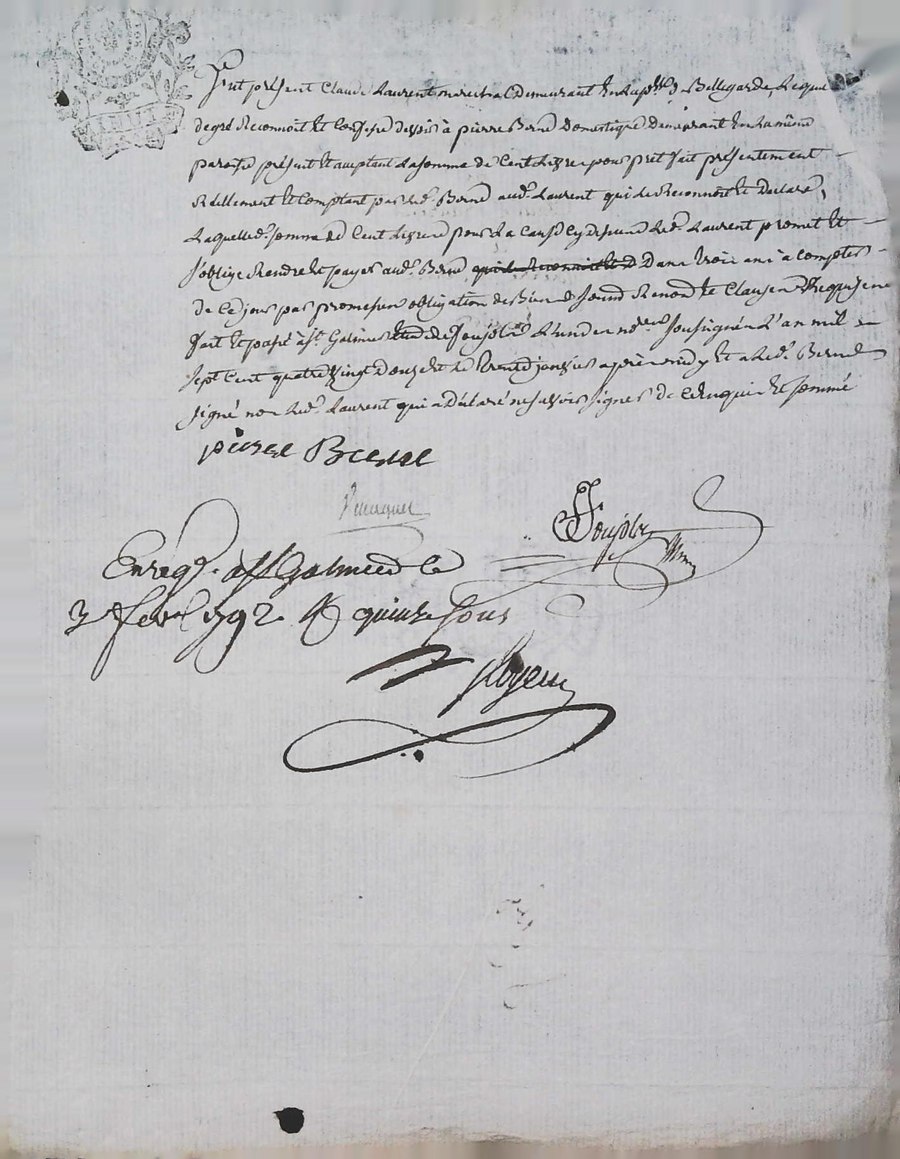 Fut présent Claude Laurent marechal demeurant en la p^sse de Bellegarde, lequel
de gré reconnoit et confesse devoir à pierre Berne domestique demeurant en la même
paroisse présent et acceptant la somme de Cent livres pour prêt fait présentement
réellement et comptant par led. Berne aud. Laurent qui le reconnoit et déclare,
laquelle d. somme de Cent livres pour la cause cy dessus led. Laurent promet et
s'oblige rendre et payer aud. Berne dans trois ans à compter
de ce jour par promesse obligation de biens soumd renond et clauses requises
fait et passé à st. Galmier étude de l'un des no^res soussignés l'an mil
sept cent quatre vingt douze et le trente janvier après midy et a led. Berne
signé non led. Laurent qui a déclaré ne savoir signer de ce enquis et sommé
pierre Berne
Enrég^. à st Galmier le
3 fevr 1792 R quinze sous